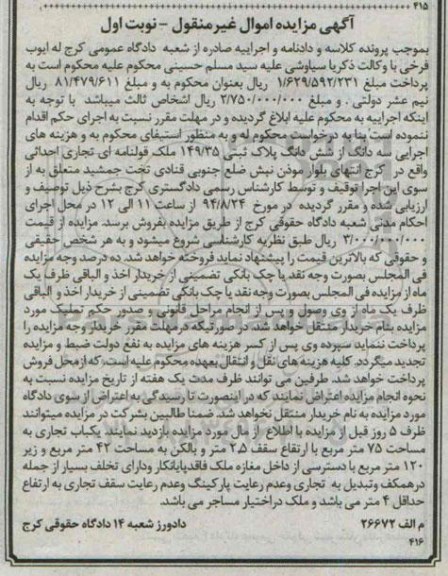 ۴۱۵
آگهی مزایده اموال غیرمنقول - نوبت اول
بموجب پرونده کلاسه و دادنامه و اجراییه صادره از شعبه دادگاه عمومی کرج له ایوب
فرخی با وکالت ذکریا سیاوشی علیه سید مسلم حسینی محکوم علیه محکوم است به
پرداخت مبلغ ۱/۶۲۹/۵۹۲/۲۳۱ ریال بعنوان محکوم به و مبلغ ۸۱/۴۷۹/۶۱۱ ریال
نیم عشر دولتی . و مبلغ ۲/۷۵۰/۰۰۰/۰۰۰ ریال اشخاص ثالث میباشد با توجه به
اینکه اجراییه به محکوم علیه ابلاغ گردیده و در مهلت مقرر نسبت به اجرای حکم اقدام
ننموده است بنا به درخواست محکوم له و به منظور استیفای محکوم به و هزینه های
اجرایی سه دانگ از شش دانگ پلاک ثبتی ۱۴۹/۳۵ ملک قولنامه ای تجاری احداثی
واقع در کرج انتهای بلوار موذن نبش ضلع جنوبی قنادی تخت جمشید متعلق به از
سوی این اجرا توقیف و توسط کارشناس رسمی دادگستری کرج بشرح ذیل توصیف و
ارزیابی شده و مقرر گردیده در مورخ ۹۴/۸/۲۴ از ساعت ۱۱ الی ۱۲ در محل اجرای
احکام مدنی شعبه دادگاه حقوقی کرج از طریق مزایده بفروش برسد. مزایده از قیمت
۳/۰۰۰/۰۰۰/۰۰۰ ریال طبق نظریه کارشناسی شروع میشود و به هر شخص حقیقی
و حقوقی که بالاترین قیمت را پیشنهاد نماید فروخته خواهد شد. ده درصد وجه مزایده
فی المجلس بصورت وجه نقد یا چک بانکی تضمینی از خریدار اخذ و الباقی ظرف یک
ماه از مزایده فی المجلس بصورت وجه نقد یا چک بانکی تضمینی از خریدار اخذ و الباقی
ظرف یک ماه از وی وصول و پس از انجام مراحل قانونی و صدور حکم تملیک مورد
مزایده بنام خریدار منتقل خواهد شد. در صورتیکه در مهلت مقرر خریدار وجه مزایده را
پرداخت ننماید سپرده وی پس از کسر هزینه های مزایده به نفع دولت ضبط و مزایده
تجدید میگردد. کلیه هزینه های نقل و انتقال بعهده محکوم علیه است که از محل فروش
پرداخت خواهد شد. طرفین می توانند ظرف مدت یک هفته از تاریخ مزایده نسبت به
نحوه انجام مزایده اعتراض نمایند که در اینصورت تا رسیدگی به اعتراض از سوی دادگاه
مورد مزایده به نام خریدار منتقل نخواهد شد. ضمنا طالبین بشرکت در مزایده میتوانند
ظرف ۵ روز قبل از مزایده با اطلاع از مال مورد مزایده بازدید نمایند. یکباب تجاری به
مساحت ۷۵ متر مربع با ارتفاع سقف ۲.۵ متر و بالکن به مساحت ۴۲ متر مربع و زیر
۱۲۰ متر مربع با دسترسی از داخل مغازه ملک فاقد پایانکار و دارای تخلف بسیار از جمله
درهمکف و تبدیل به تجاری وعدم رعایت پارکینگ وعدم رعایت سقف تجاری به ارتفاع
حداقل ۴ متر می باشد و ملک در اختیار مساجر می باشد.
م الف ۲۶۶۷۲ دادورز شعبه ۱۴ دادگاه حقوقی کرج
۴۱۶